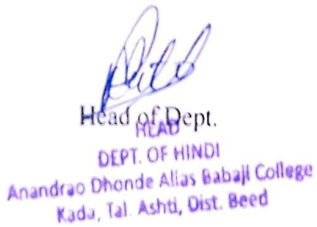 Head of Dept.
HEAD
DEPT. OF HINDI
Anandrao Dhonde Alias Babaji College
Kada, Tal. Ashti, Dist. Beed